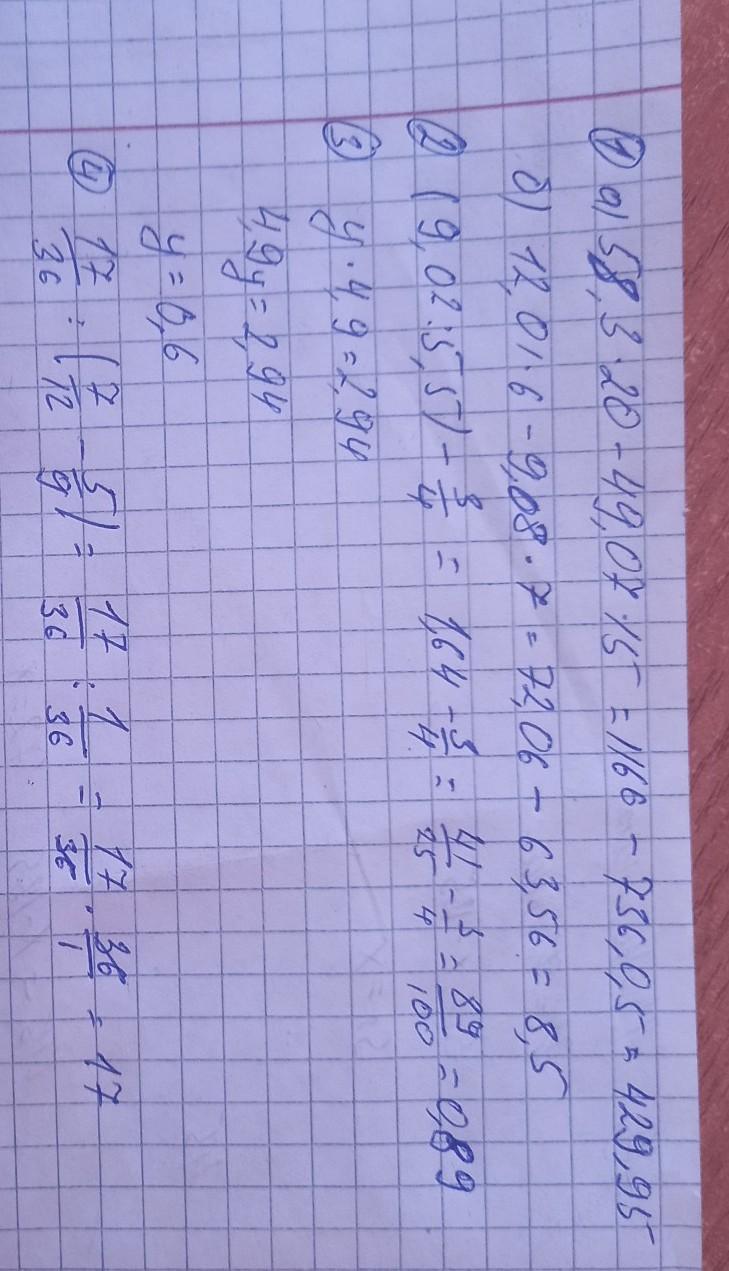 ① а) 58,3·20-49,07·15=1166-736,05=429,95
б) 12,01·6-9,08·7=72,06-63,56=8,5
② (9,02:5,5)-3/4=1,64-3/4=41/25-3/4=89/100=0,89
③ y·4,9=2,94
4,9y=2,94
y=0,6
④ 17/36:(7/12-5/9)=17/36:1/36=17/36·36/1=17